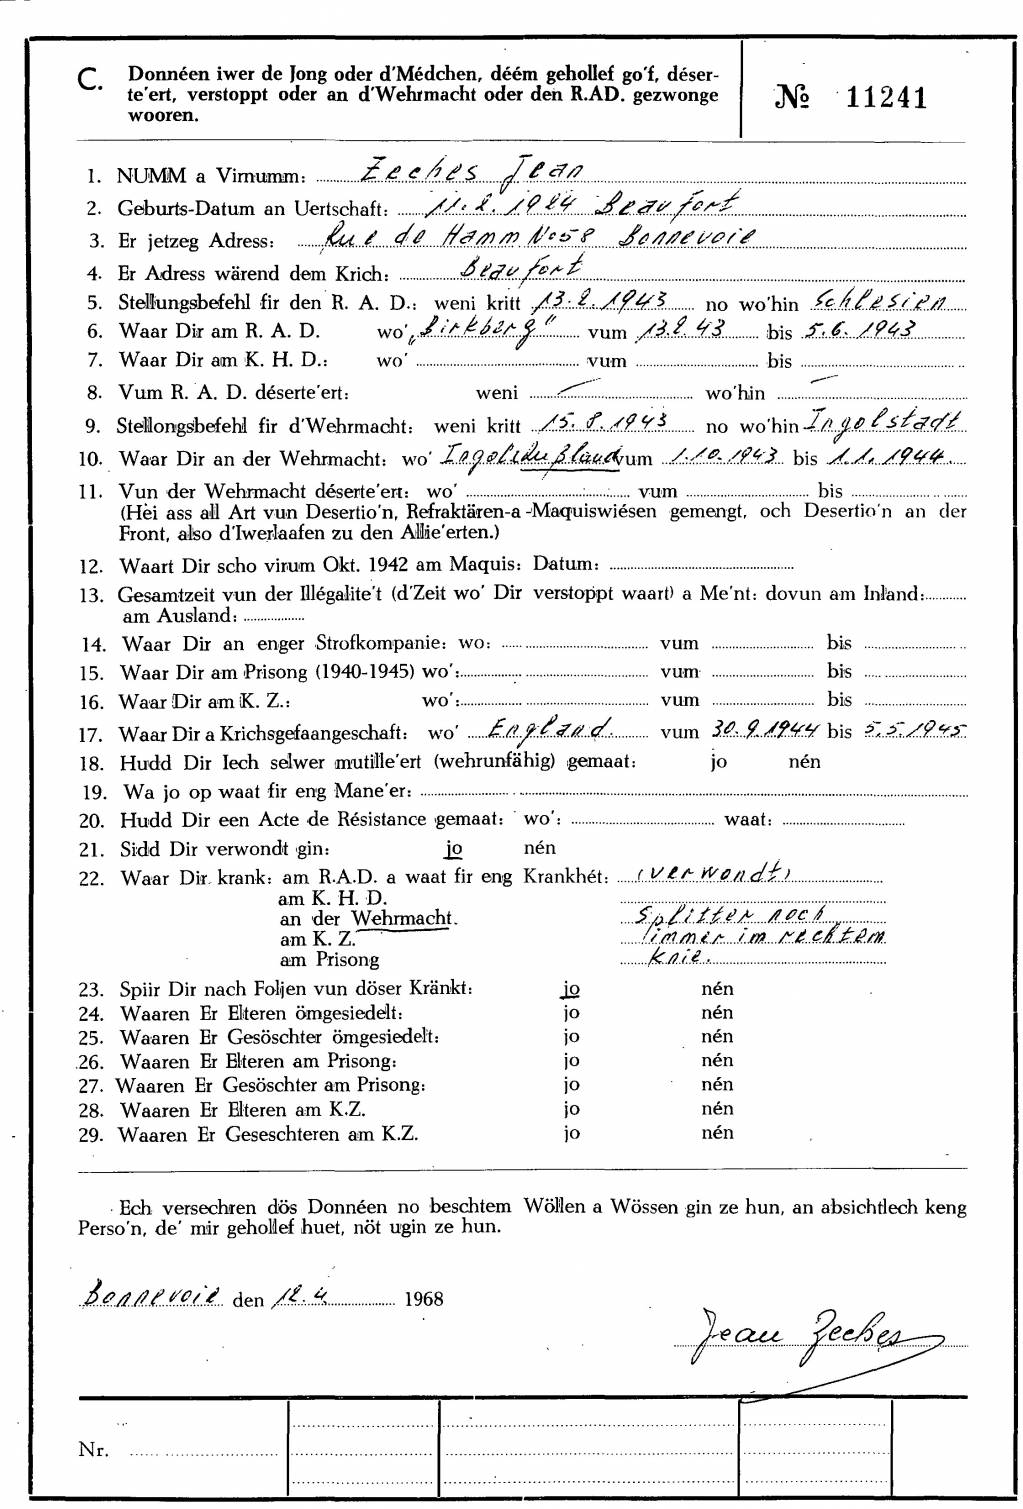 C. Donnéen iwer de Jong oder d'Médchen, déém gehollef go'f, déser-
te'ert, verstoppt oder an d'Wehrmacht oder den R.AD. gezwonge
wooren.
№ 11241
1. NUMM a Virnumm: Zeches Jean
2. Geburts-Datum an Uertschaft: 11.2.1924 Beaufort
3. Er jetzeg Adress: Rue de Hamm No58 Bonnevoie
4. Er Adress wärend dem Krich: Beaufort
5. Stellungsbefehl fir den R. A. D.: weni kritt 13.2.1943 no wo'hin Schlesien
6. Waar Dir am R. A. D. wo' „Birkberg" vum 13.2.43 bis 5.6.1943
7. Waar Dir am K. H. D.: wo' vum bis
8. Vum R. A. D. déserte'ert: weni — wo'hin —
9. Stellongsbefehl fir d'Wehrmacht: weni kritt 15.8.1943 no wo'hin Ingolstadt
10. Waar Dir an der Wehrmacht: wo' vum 1.10.1943 bis 1.1.1944.
11. Vun der Wehrmacht déserte'ert: wo' vum bis
(Hëi ass all Art vun Desertio'n, Refraktären-a -Maquiswiésen gemengt, och Desertio'n an der
Front, also d'Iwerlaafen zu den Allie'erten.)
12. Waart Dir scho virum Okt. 1942 am Maquis: Datum:
13. Gesamtzeit vun der Illégalite't (d'Zeit wo' Dir verstoppt waart) a Me'nt: dovun am Inland:
am Ausland:
14. Waar Dir an enger Strofkompanie: wo: vum bis
15. Waar Dir am Prisong (1940-1945) wo': vum bis
16. Waar Dir am K. Z.: wo': vum bis
17. Waar Dir a Krichsgefaangeschaft: wo' England. vum 30.9.1944 bis 5.5.1945
18. Hudd Dir Iech selwer mutille'ert (wehrunfähig) gemaat: jo nén
19. Wa jo op waat fir eng Mane'er:
20. Hudd Dir een Acte de Résistance gemaat: wo': waat:
21. Sidd Dir verwondt gin: jo nén
22. Waar Dir krank: am R.A.D. a waat fir eng Krankhét: (verwondt)
am K. H. D.
an der Wehrmacht. Splitter noch
am K. Z. immer im rechtem
am Prisong Knie.
23. Spiir Dir nach Foljen vun döser Kränkt: jo nén
24. Waaren Er Elteren ömgesiedelt: jo nén
25. Waaren Er Gesöschter ömgesiedelt: jo nén
26. Waaren Er Elteren am Prisong: jo nén
27. Waaren Er Gesöschter am Prisong: jo nén
28. Waaren Er Elteren am K.Z. jo nén
29. Waaren Er Geseschteren am K.Z. jo nén
Ech versechren dös Donnéen no beschtem Wöllen a Wössen gin ze hun, an absichtlech keng
Perso'n, de' mir gehollef huet, nöt ugin ze hun.
Bonnevoie den 12.4. 1968
Jean Zeches
Nr.